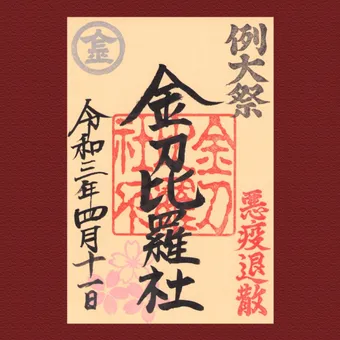 例大祭
悪疫退散
金刀比羅社
令和三年四月十一日
金